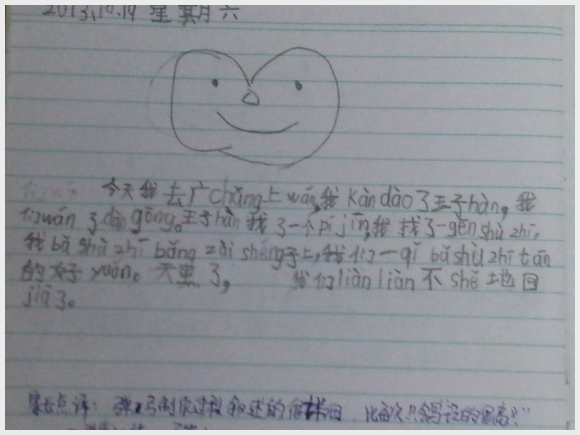 2013.10.19 星期六
今天我去广chǎng上wán,我kàn dào了王子hàn,我
们wán了dàn gōng。王子hàn找了一个pí jīn,我找了一gēn shù zhī,
我bǎ shù zhī bǎng zài shéng子上,我们一qǐ bǎ shù zhī tán
的好yuǎn。天黑了, 我们liàn liàn不shě地回
jiā了。
家长点评: